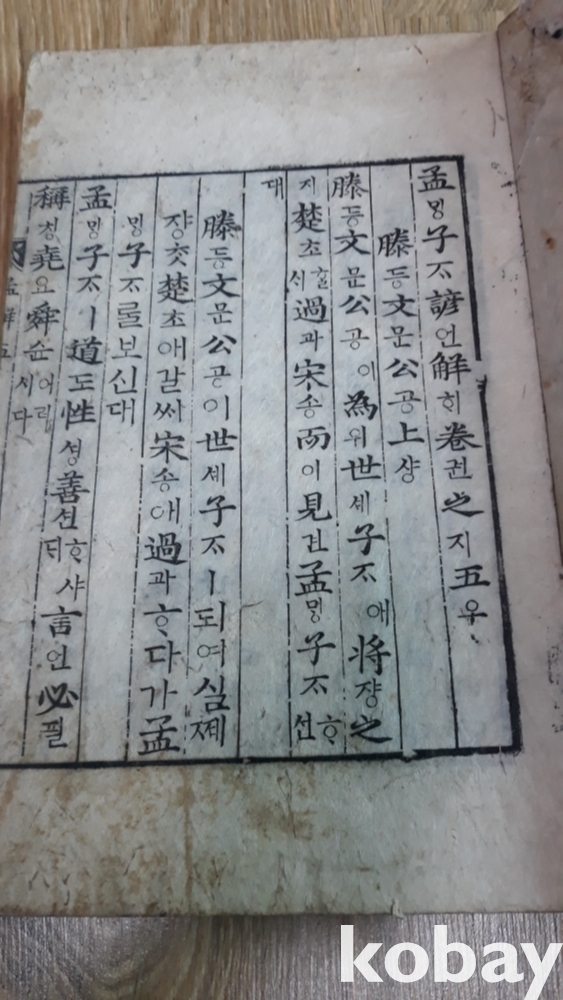 孟ᄆᆡᆼ子ᄌᆞ諺언解ᄒᆡ卷권之지五우
滕등文문公공上샹
滕등文문公공이為위世셰子ᄌᆞ애將쟝之
지楚초ᄒᆞᆯᄉᆡ過과宋송而이見견孟ᄆᆡᆼ子ᄌᆞᄒᆞ신
대
滕등文문公공이世셰子ᄌᆞㅣ되여심쩨
쟝ᄎᆞᆺ楚초애갈ᄊᆡ宋송애過과ᄒᆞ다가孟
ᄆᆡᆼ子ᄌᆞᄅᆞᆯ보신대
孟ᄆᆡᆼ子ᄌᆞㅣ道도性셩善션ᄒᆞ샤ᄃᆡ言언必필
稱칭堯요舜슌이러시다
kobay